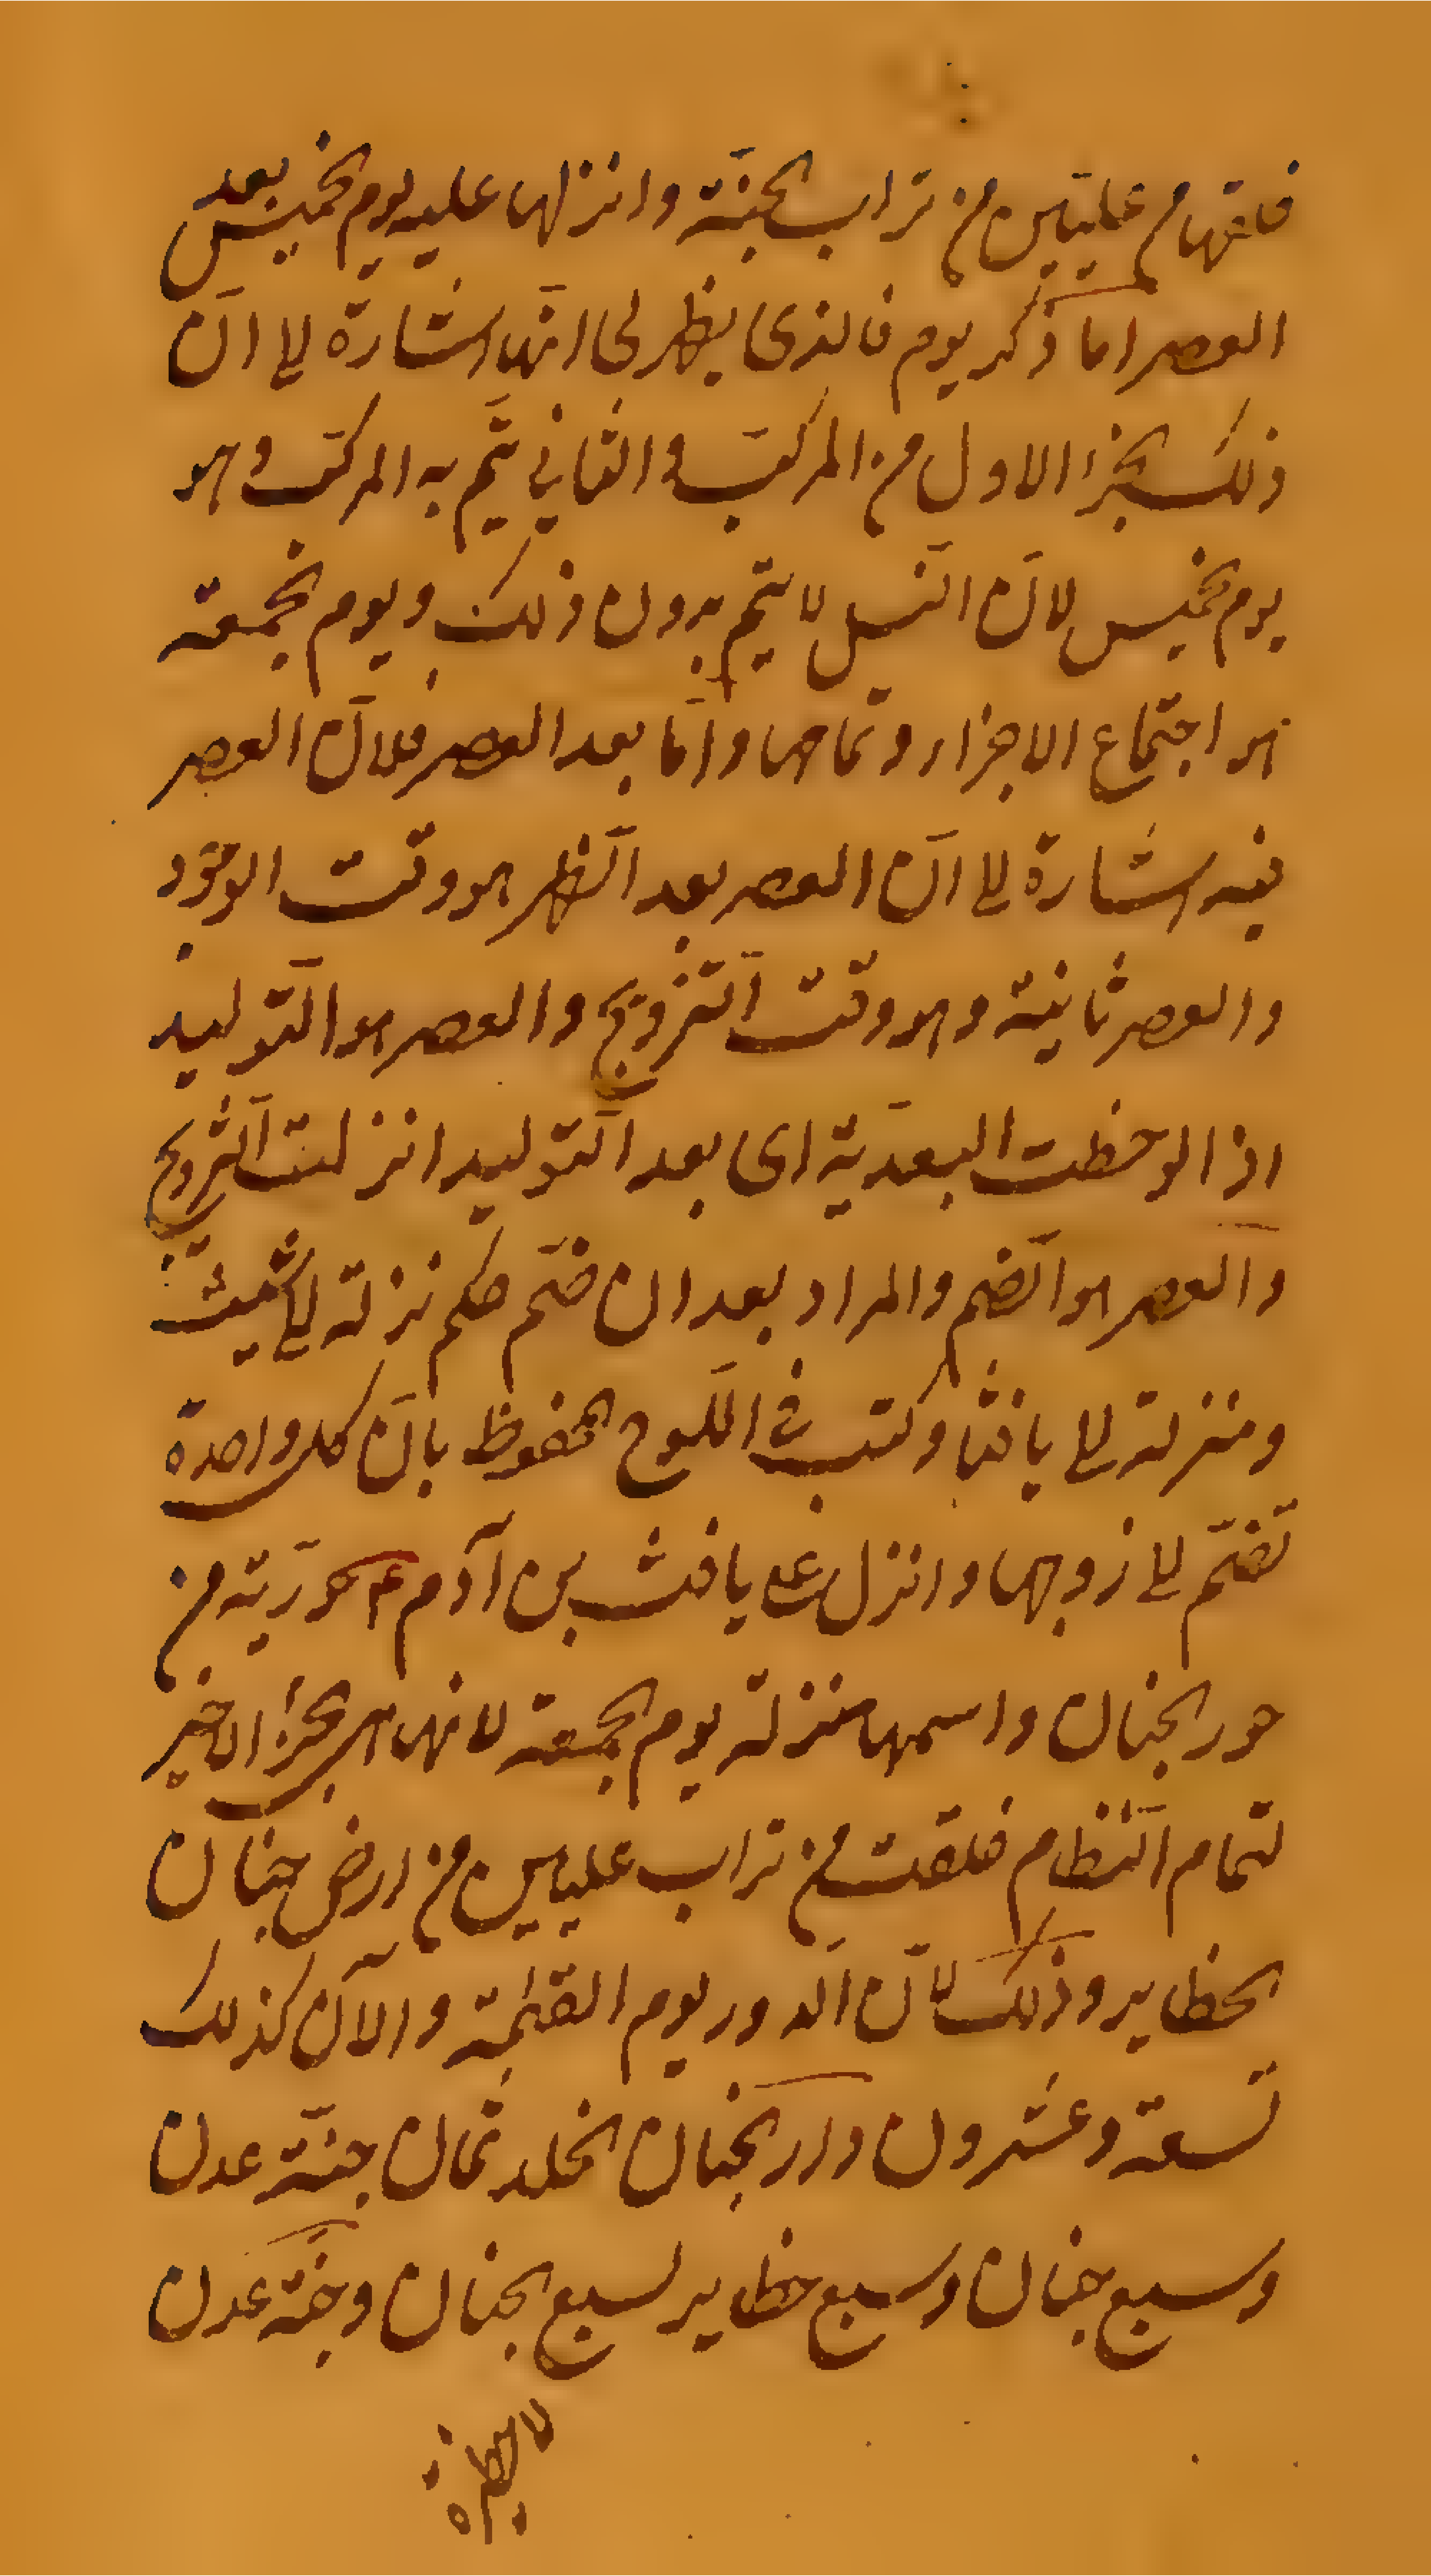 خلقها من عليين من تراب الجنة وانزلها عليه يوم الخميس بعد
العصر اما ذكر يوم فالذى يظهر لى انها اشارة الى ان
ذلك الجزء الاول من المركب والثاني يتم به المركب وهو
يوم الخميس لان النسل لا يتم بدون ذلك ويوم الجمعة
هو اجتماع الاجزاء وتمامها واما بعد العصر فلان العصر
فيه اشارة الى ان العصر بعد الظهر هو وقت الوجود
والعصر ثانية وهو وقت التزويج والعصر هو التوليد
اذا لوحظت البعدية اى بعد التوليد انزلت التزويج
والعصر هو الضم والمراد بعد ان ضم حكم نزلة الى شيث
ومنزلة الى يافث وكتب فى اللوح المحفوظ بان كل واحدة
تضم الى زوجها وانزل على يافث بن آدم ع حورية من
حور الجنان واسمها منزلة يوم الجمعة لانها هى الجزء الاخير
لتمام النظام خلقت من تراب عليين من ارض جنان
الحظاير وذلك لان الدور يوم القيمة والآن كذلك
تسعة وعشرون دار الجنان الخلد ثمان جنة عدن
وسبع جنان وسبع حظاير لسبع الجنان وجنة عدن
لا حظيرة